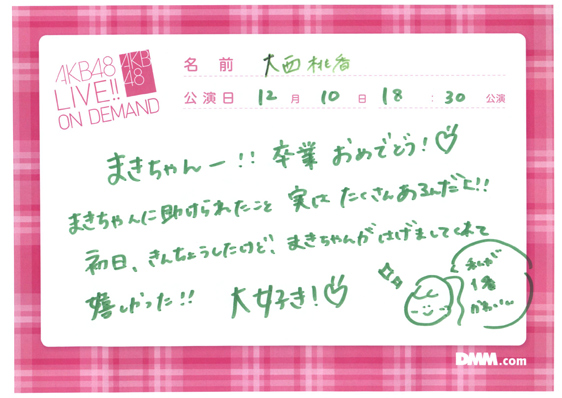 AKB48
LIVE!!
ON DEMAND
AKB
48
名前 大西桃香
公演日 12月 10日 18:30 公演
まきちゃんー!! 卒業 おめでとう!♡
まきちゃんに助けられたこと 実は たくさんあるんだよ!!
初日、きんちょうしたけど、まきちゃんが はげましてくれて
嬉しかった!! 大好き!♡
1番
かわいい
DMM.com